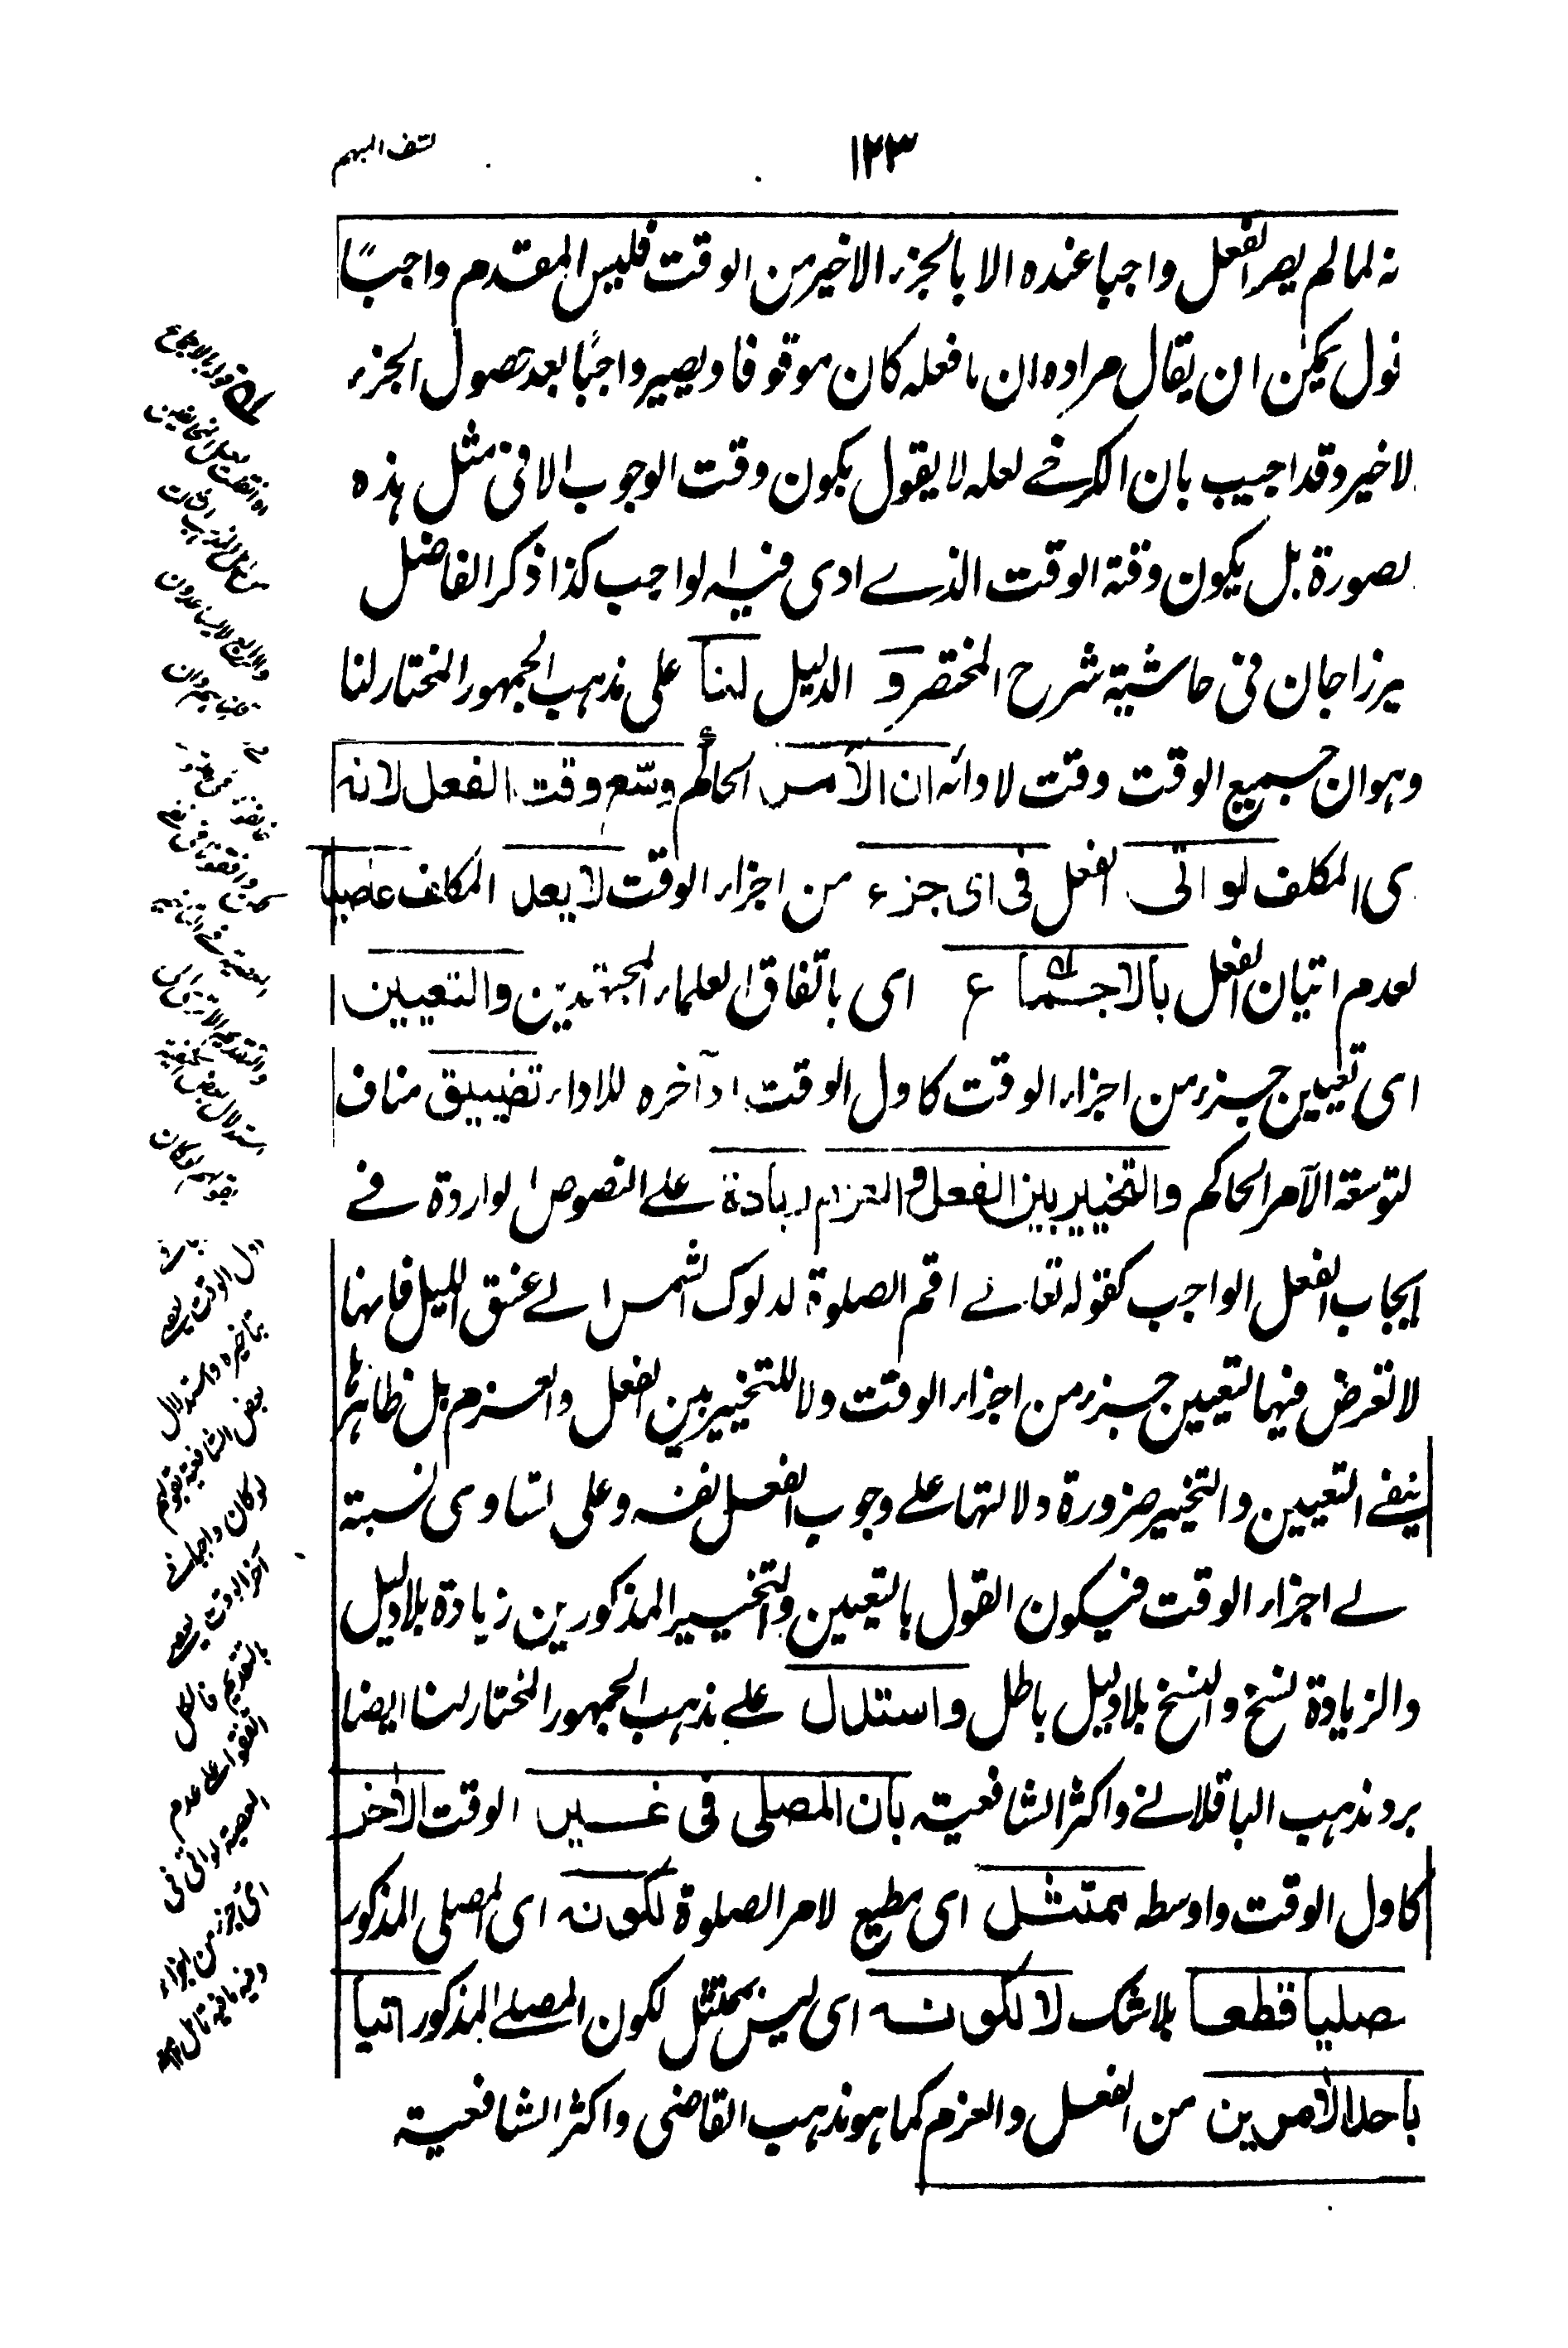 ١٢٣
كشف المبهم
نه لما لم يصر الفعل واجبا عنده الا بالجزء الاخير من الوقت فليس المقدم واجبًا
نول يمكن ان يقال مراده ان ما فعله كان موقوفا ويصير واجبًا بعد حصول الجزء
لاخير وقد اجيب بان الكرخے لعله لا يقول بكون وقت الوجوب الا فی مثل هذه
لصورة بل يكون وقته الوقت الذے ادی فيه الواجب كذا ذكر الفاضل
ميرزاجان فی حاشية شرح المختصر و الدليل لنا علی مذهب الجمهور المختار لنا
وهو ان جميع الوقت وقت لادائه ان الأمر الحاكم وسّع وقت الفعل لانه
ی المكلف لو اتی الفعل فی ای جزء من اجزاء الوقت لا يعد المكلف عاصيا
لعدم اتيان الفعل بالاجماع ای باتفاق العلماء المجتهدين والتعيين
ای تعيين جزء من اجزاء الوقت كاول الوقت او آخره للاداء تضييق مناف
لتوسعة الآمر الحاكم والتخيير بين الفعل والعزم زيادة علے النصوص الواردة فے
ايجاب الفعل الواجب كقوله تعالے اقم الصلوة لدلوك الشمس الے غسق الليل فانها
لا تعرض فيها لتعيين جزء من اجزاء الوقت ولا للتخيير بين الفعل والعزم بل ظاهرها
ينفے التعيين والتخيير ضرورة دلالتها علے وجوب الفعل بنفسه وعلی تساوی نسبته
لے اجزاء الوقت فيكون القول بالتعيين والتخيير المذكورين زيادة بلا دليل
والزيادة نسخ والنسخ بلا دليل باطل واستدل علے مذهب الجمهور المختار لنا ايضا
برد مذهب الباقلانے واكثر الشافعية بان المصلی فی غير الوقت الاٰخر
كاول الوقت واوسطه ممتثل ای مطيع لامر الصلوة لكونه ای المصلی المذكور
مصليا قطعا بلا شك لا لكونه ای ليس بممتثل لكون المصلے المذكور اتيا
باحد الامرين من الفعل والعزم كما هو مذهب القاضی واكثر الشافعية
قوله بالاجماع
اول الوقت
بتاخيره واستدلال
بعض الشافعية بقولهم
لو كان واجبا فے
آخر الوقت
بالتقديم
اتفقوا علے عدم
المعصية لو اتی فی
ای جزء من اجزاء
وفيه ما فيه تامل